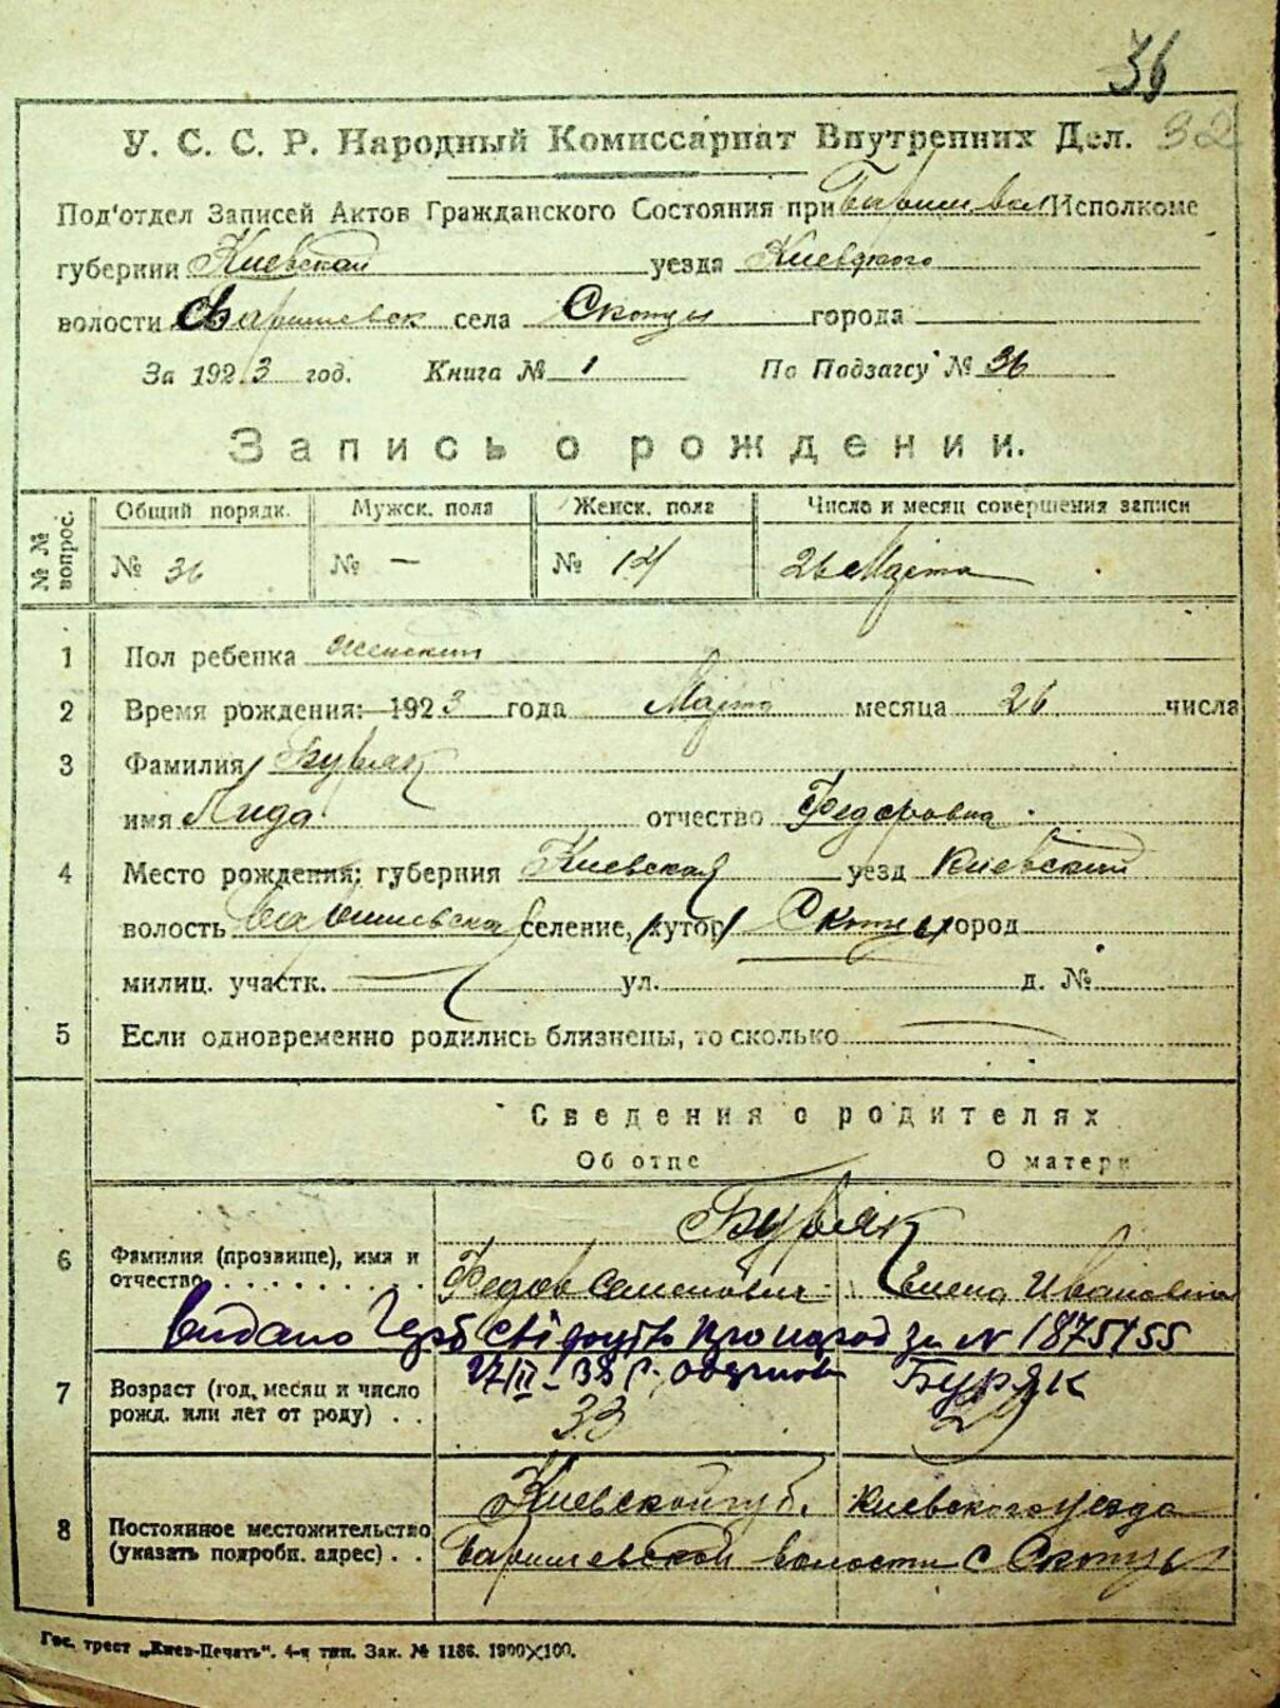 36
У. С. С. Р. Народный Комиссариат Внутренних Дел. 32
Под'отдел Записей Актов Гражданского Состояния при Исполкоме
губернии Киевской уезда Киевского
волости Баришевск села Скопцы города
За 1923 год. Книга № 1 По Подзагсу № 36
Запись о рождении.
№№ вопрос. Общий порядк. Мужск. пола Женск. пола Число и месяц совершения записи
№ 36 № — № 14 26 Марта
1 Пол ребенка женский
2 Время рождения: 1923 года Марта месяца 26 числа
3 Фамилия Буряк
имя Лида отчество Федоровна
4 Место рождения: губерния Киевская уезд Киевский
волость Баришевская селение, хутор Скопцы город
милиц. участк. — ул. д. №
5 Если одновременно родились близнецы, то сколько —
Сведения о родителях
Об отце О матери
Буряк
6 Фамилия (прозвище), имя и
отчество . . . . . . . . . Федор Семенович Елена Ивановна
видано про народ за N 1875155
27/II-38 р. Буряк
7 Возраст (год, месяц и число
рожд. или лет от роду) . . 33 29
8 Постоянное местожительство
(указать подробн. адрес) . .
Киевской губ. Киевского уезда
Баришевской волости с Скопцы
Гос. трест „Киев-Печать". 4-я тип. Зак. № 1186. 1900×100.